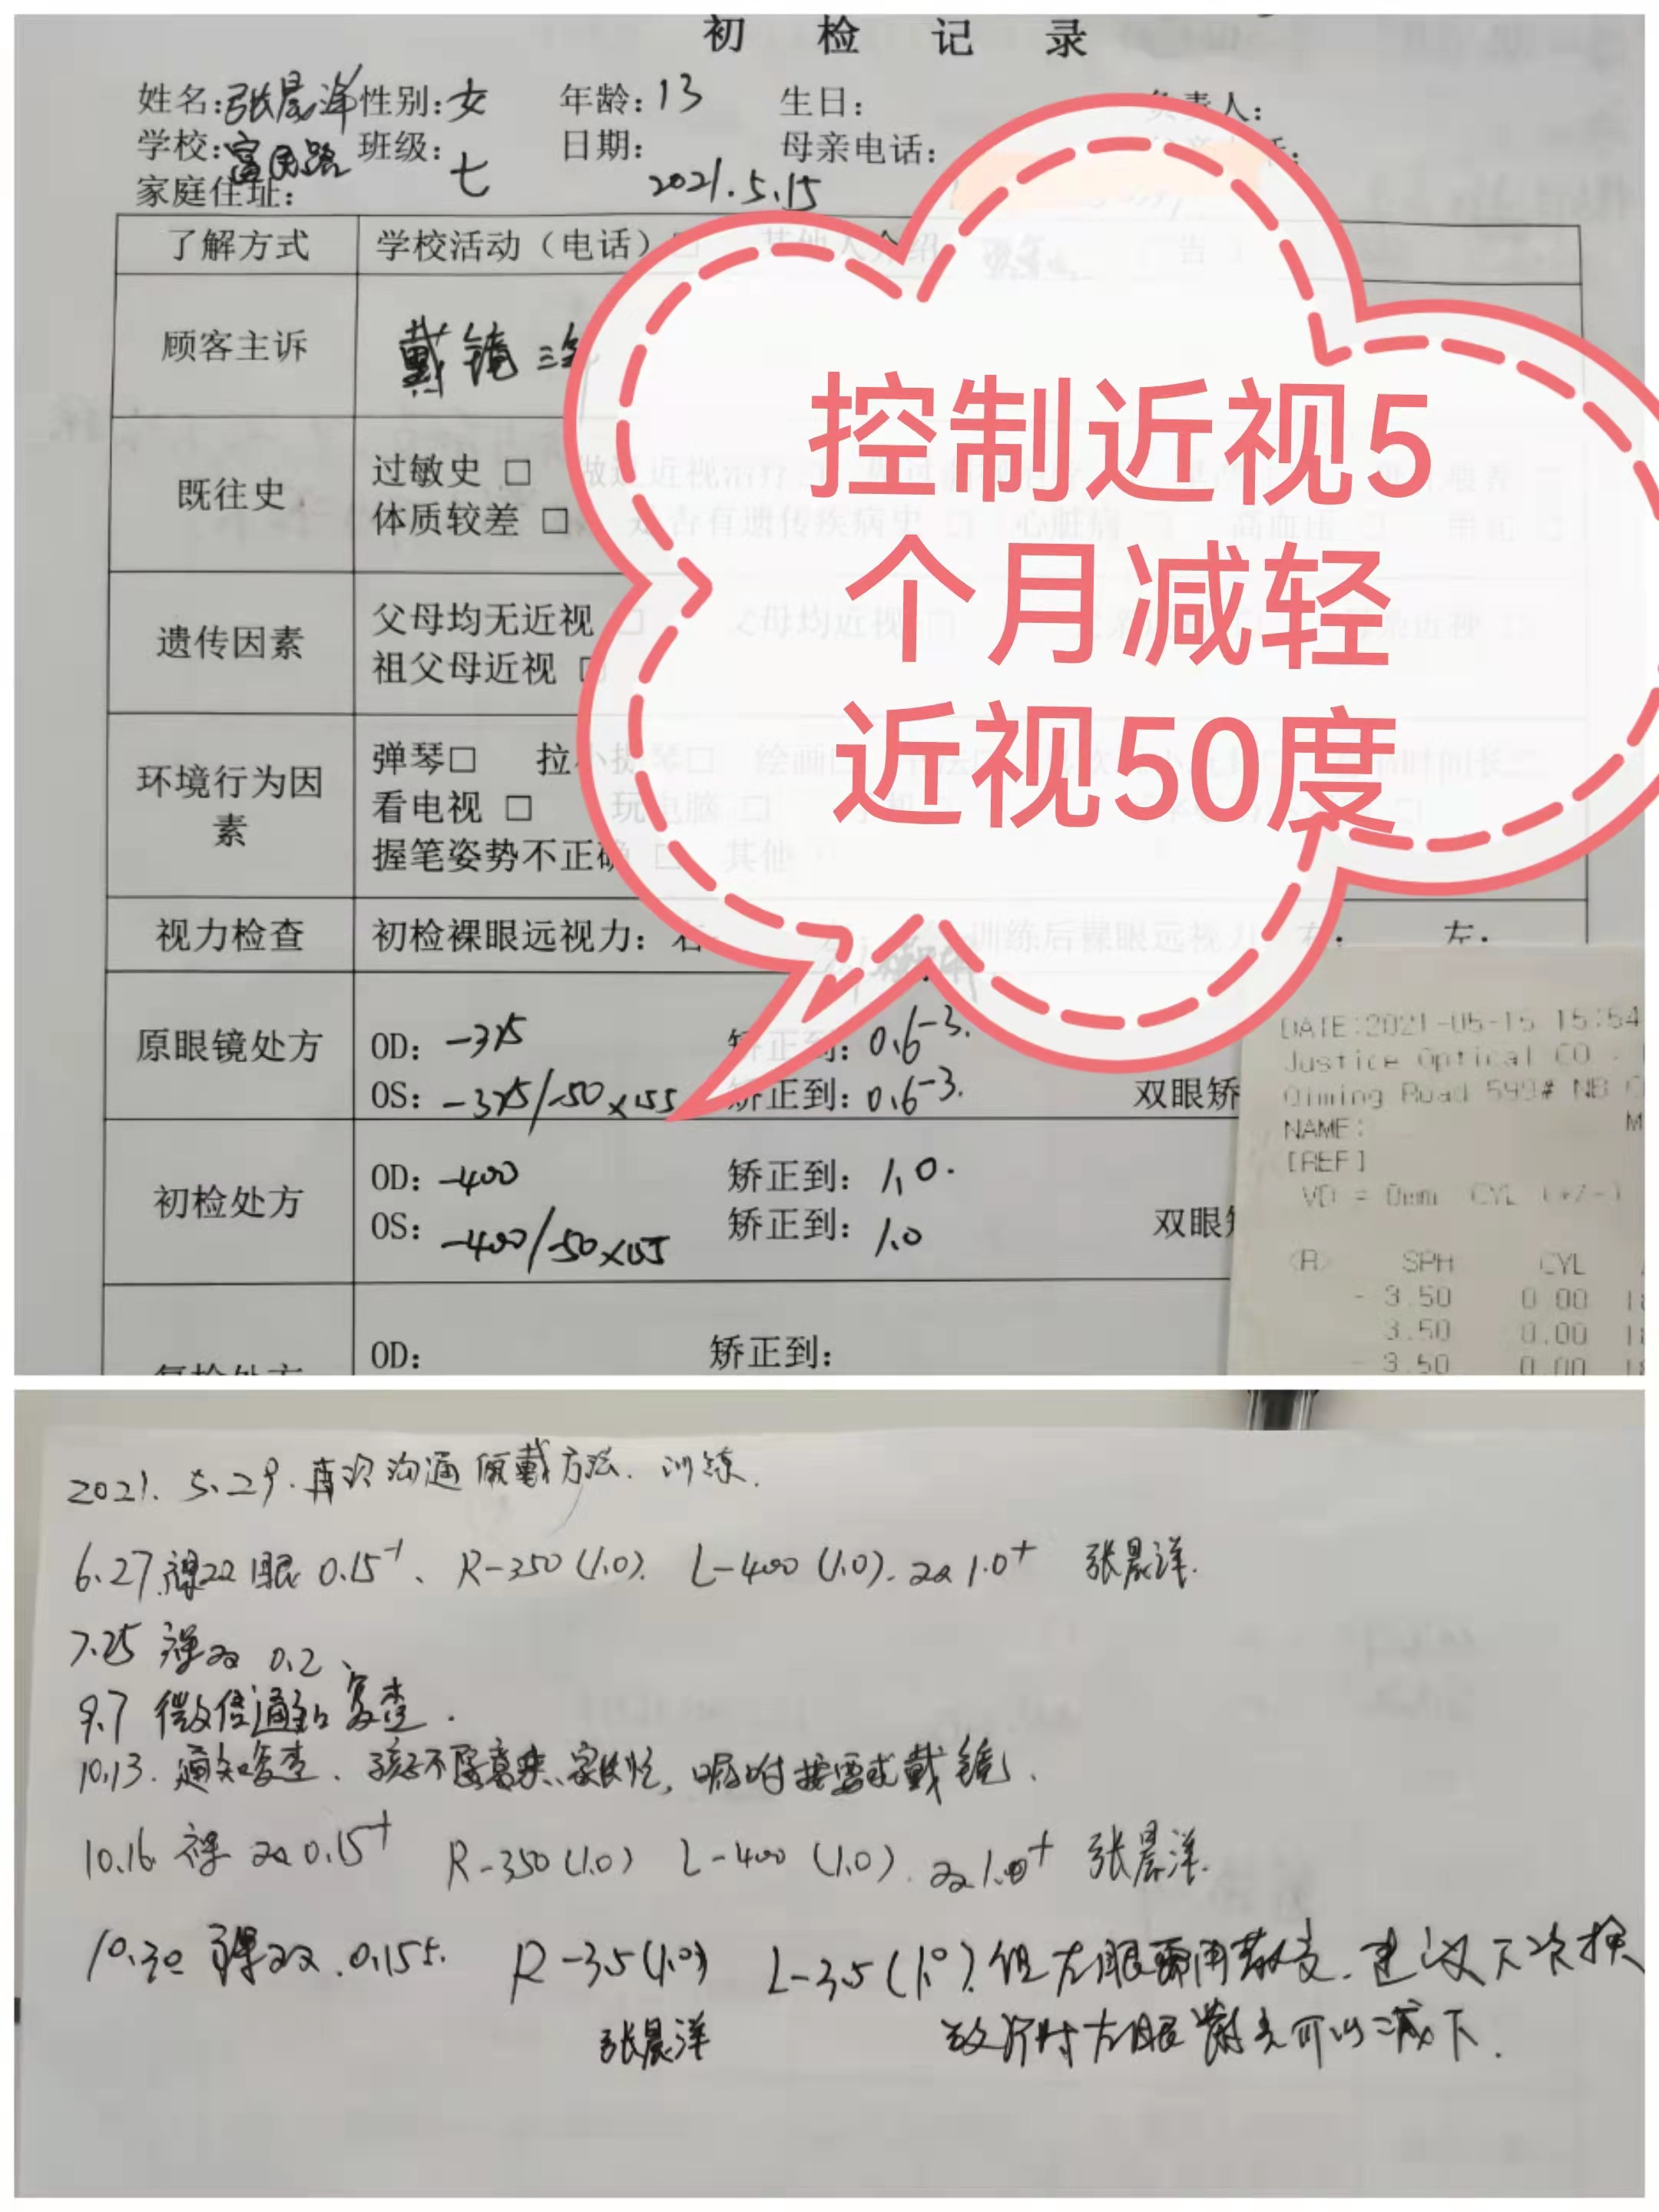 初 检 记 录
姓名:张晨洋 性别:女 年龄:13 生日: 负责人:
学校:富民路 班级:七 日期:2021.5.15 母亲电话:
家庭住址:
了解方式 学校活动（电话）□ 其他人介绍
顾客主诉 戴镜三年
既往史 过敏史 □
体质较差 □ 是否有遗传疾病史 □ 心脏病 □ 高血压 □
遗传因素 父母均无近视 □ 父母均近视 □
祖父母近视 □
环境行为因素 弹琴□ 拉小提琴□ 绘画□
看电视 □ 玩电脑 □
握笔姿势不正确 □ 其他
视力检查 初检裸眼远视力：右: 训练后裸眼远视力 右: 左:
原眼镜处方 OD: -375 矫正到: 0.6-3.
OS: -375/-50×155 矫正到: 0.6-3. 双眼矫
初检处方 OD: -400 矫正到: 1.0.
OS: -400/-50×155 矫正到: 1.0 双眼
复检处方 OD: 矫正到:
控制近视5
个月减轻
近视50度
DATE:2021-05-15 15:54
Justice Optical CO.
Qiming Road 599# NB
NAME: M
[REF]
VD = 0mm CYL (+/-)
<R> SPH CYL
- 3.50 0.00 18
3.50 0.00 18
- 3.50 0.00 18
2021. 5.29.再次沟通 戴方法. 训练.
6.27.裸双眼 0.15-1、R-350 (1.0). L-400 (1.0). 双1.0+ 张晨洋.
7.25 裸双 0.2、
9.7 微信通知复查.
10.13. 通知复查、孩子不愿意来、家长忙, 嘱咐按要求戴镜.
10.16 裸 双0.15+ R-350 (1.0) L-400 (1.0). 双1.0+ 张晨洋.
10.30 裸双 .0.155. R-3.5(1.0) L-3.5(1.0). 但左眼要用散光. 建议下次换
张晨洋 左眼散光可以减下.